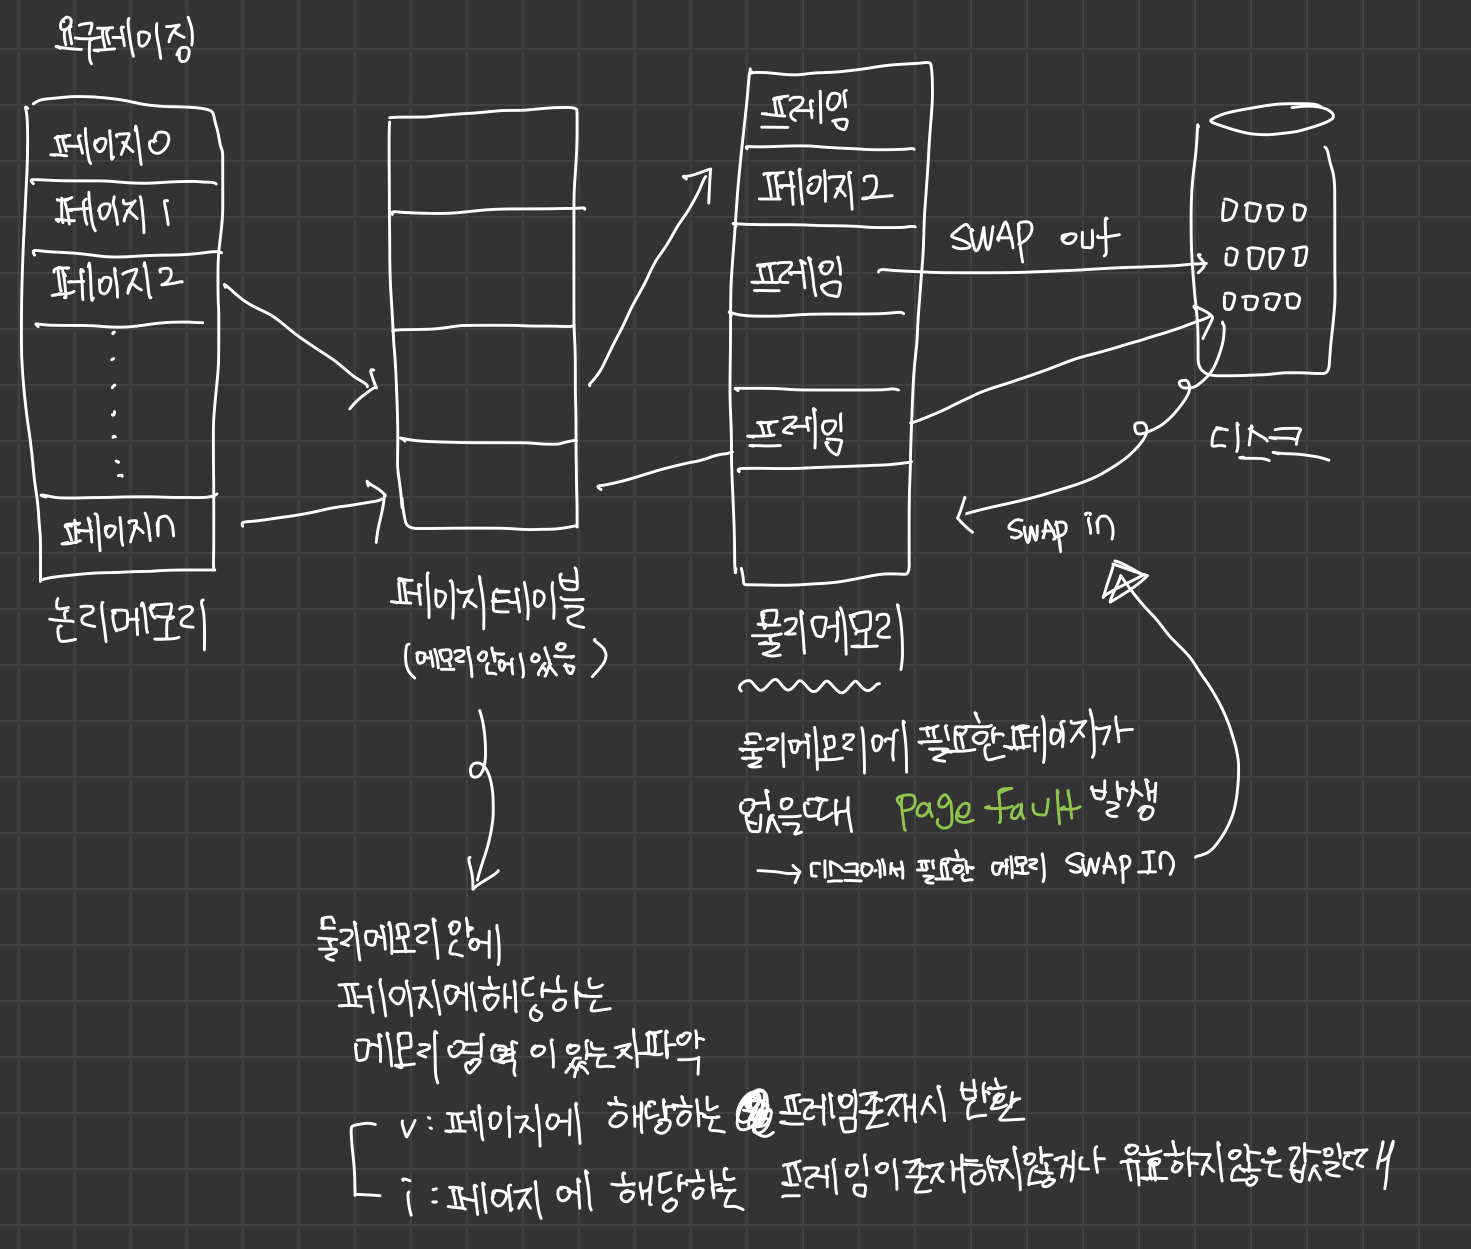 요구페이징
페이지0
페이지1
페이지2
페이지n
논리메모리
페이지테이블
(메모리안에있음)
프레임
페이지2
프레임
프레임
물리메모리
SWAP out
디스크
SWAP in
물리메모리에 필요한페이지가
없을때 Page fault 발생
→ 디스크에서 필요한 메모리 SWAP IN
물리메모리안에
페이지에해당하는
메모리영역이있는지파악
v : 페이지에 해당하는 프레임존재시 반환
i : 페이지에 해당하는 프레임이존재하지않거나 유효하지않은값일때